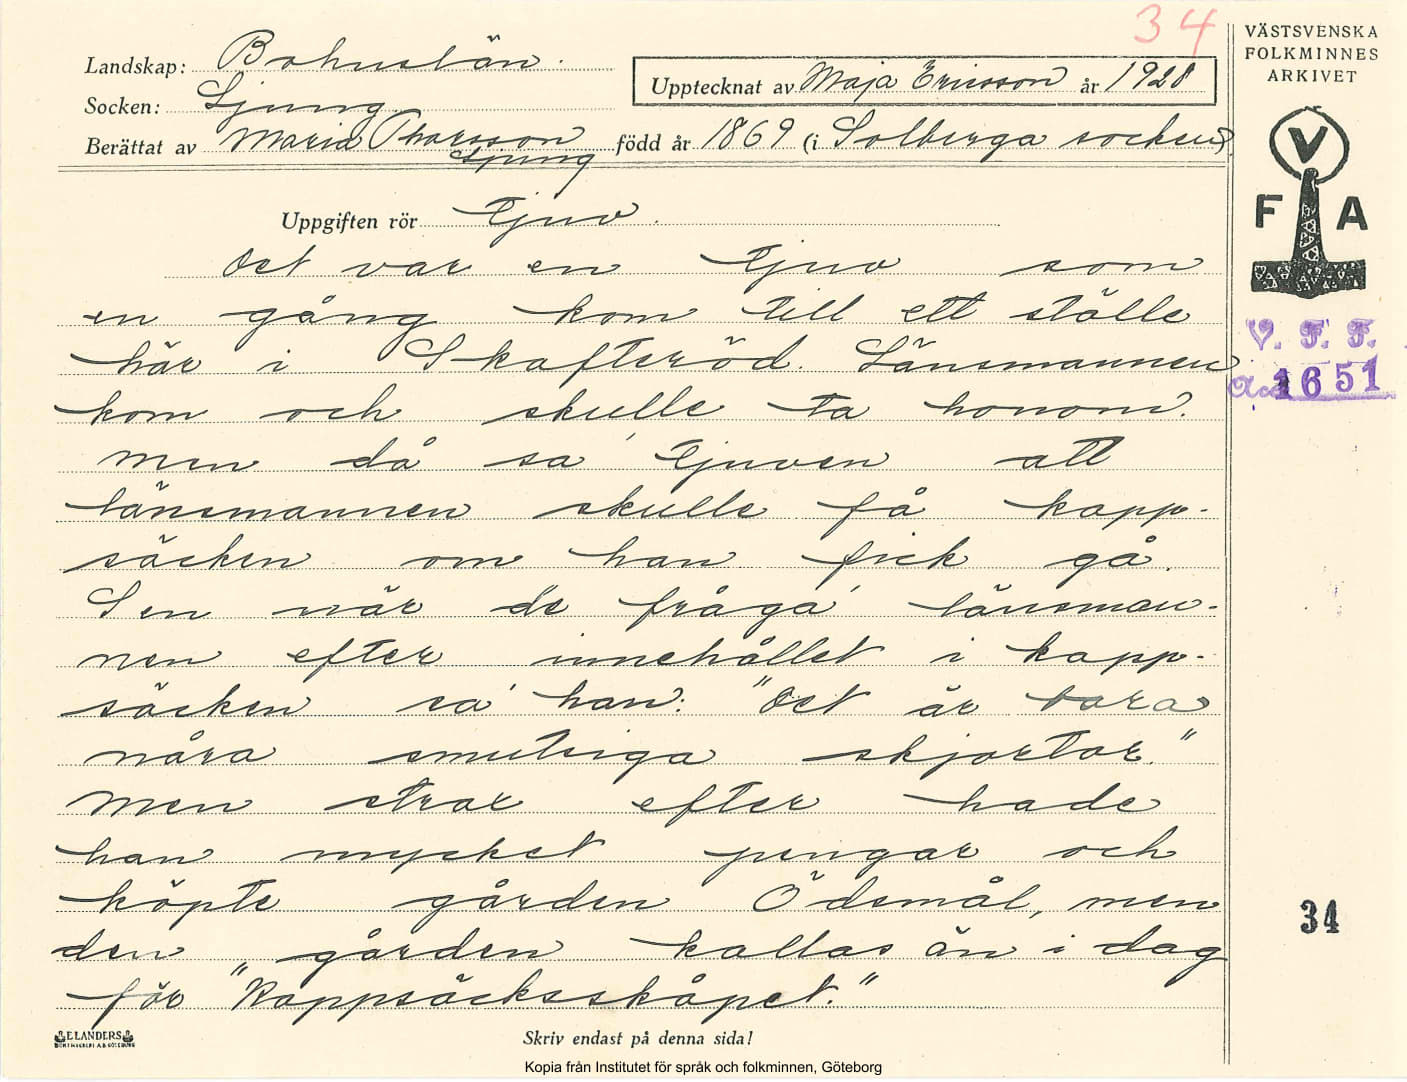 34
VÄSTSVENSKA
FOLKMINNES
ARKIVET
Landskap: Bohuslän.
Upptecknat av Maja Ericsson år 1928
Socken: Ljung
Berättat av Maria Thorsson född år 1869 (i Solberga socken)
Ljung
V
F A
Uppgiften rör Tjuv.
Det var en tjuv som
en gång kom till ett ställe
här i Skafteröd. Länsmannen
kom och skulle ta honom.
Men då sa' tjuven att
länsmannen skulle få kapp-
säcken om han fick gå.
Sen när de fråga' länsman-
nen efter innehållet i kapp-
säcken sa' han: "Det är bara
nåra smutsiga skjortor."
Men strax efter hade
han mycket pengar och
köpte gården Ödsmål, men
den gården kallas än i dag
för "Kappsäcksskåpet."
V. F. F.
Acc 1651
34
ELANDERS
BOKTRYCKERI A.B. GÖTEBORG
Skriv endast på denna sida!
Kopia från Institutet för språk och folkminnen, Göteborg